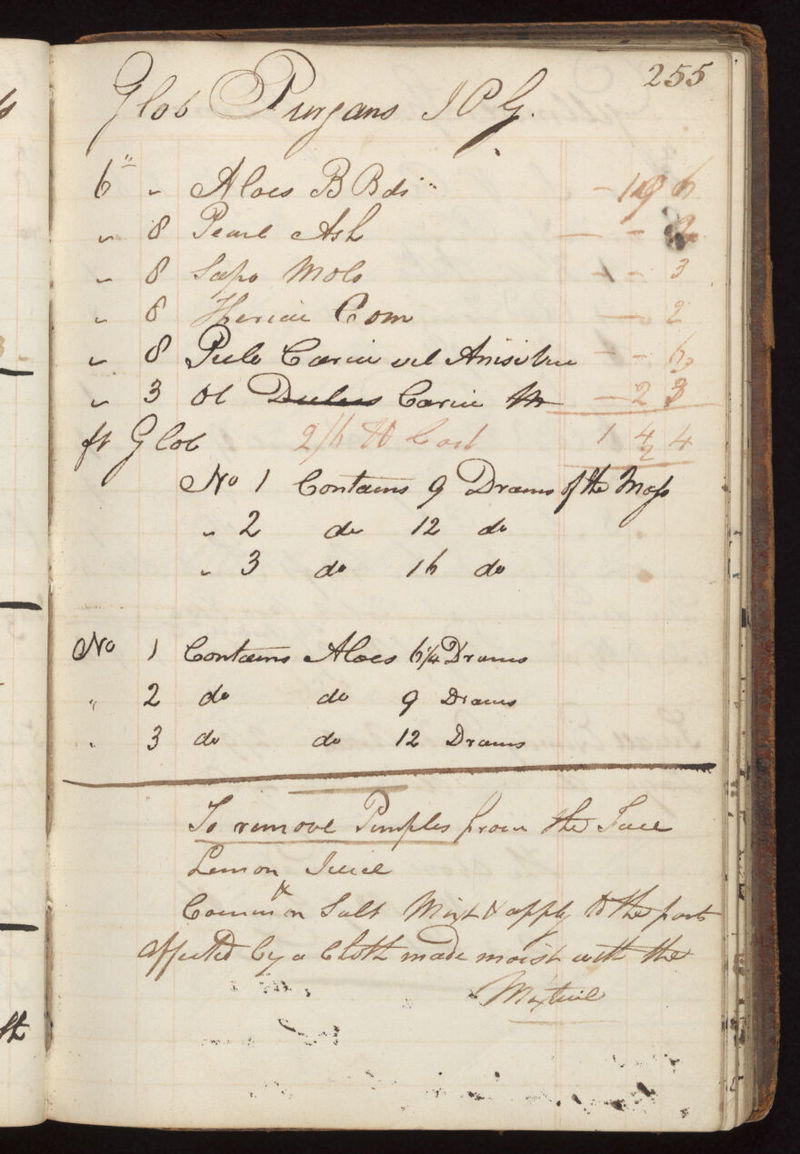 255
Glob Purgans J P G.
6 " Aloes B Bds " - 19 6
" 8 Pearl Ash - - 2
" 8 Sapo Moll - - 3
" 8 Theriac Com - 2
" 8 Pulv Carui vel Anisi - - 6
" 3 Ol Dulcis Carui - 2 3
ft Glob 2/6 ℔ Cost 1 4 4
No 1 Contains 9 Drams of the Mass
" 2 do 12 do
" 3 do 16 do
No 1 Contains Aloes 6¼ Drams
" 2 do do 9 Drams
" 3 do do 12 Drams
To remove Pimples from the Face
Lemon Juice
&
Common Salt Mixt & apply to the part
affected by a Cloth made moist with the
Mixture